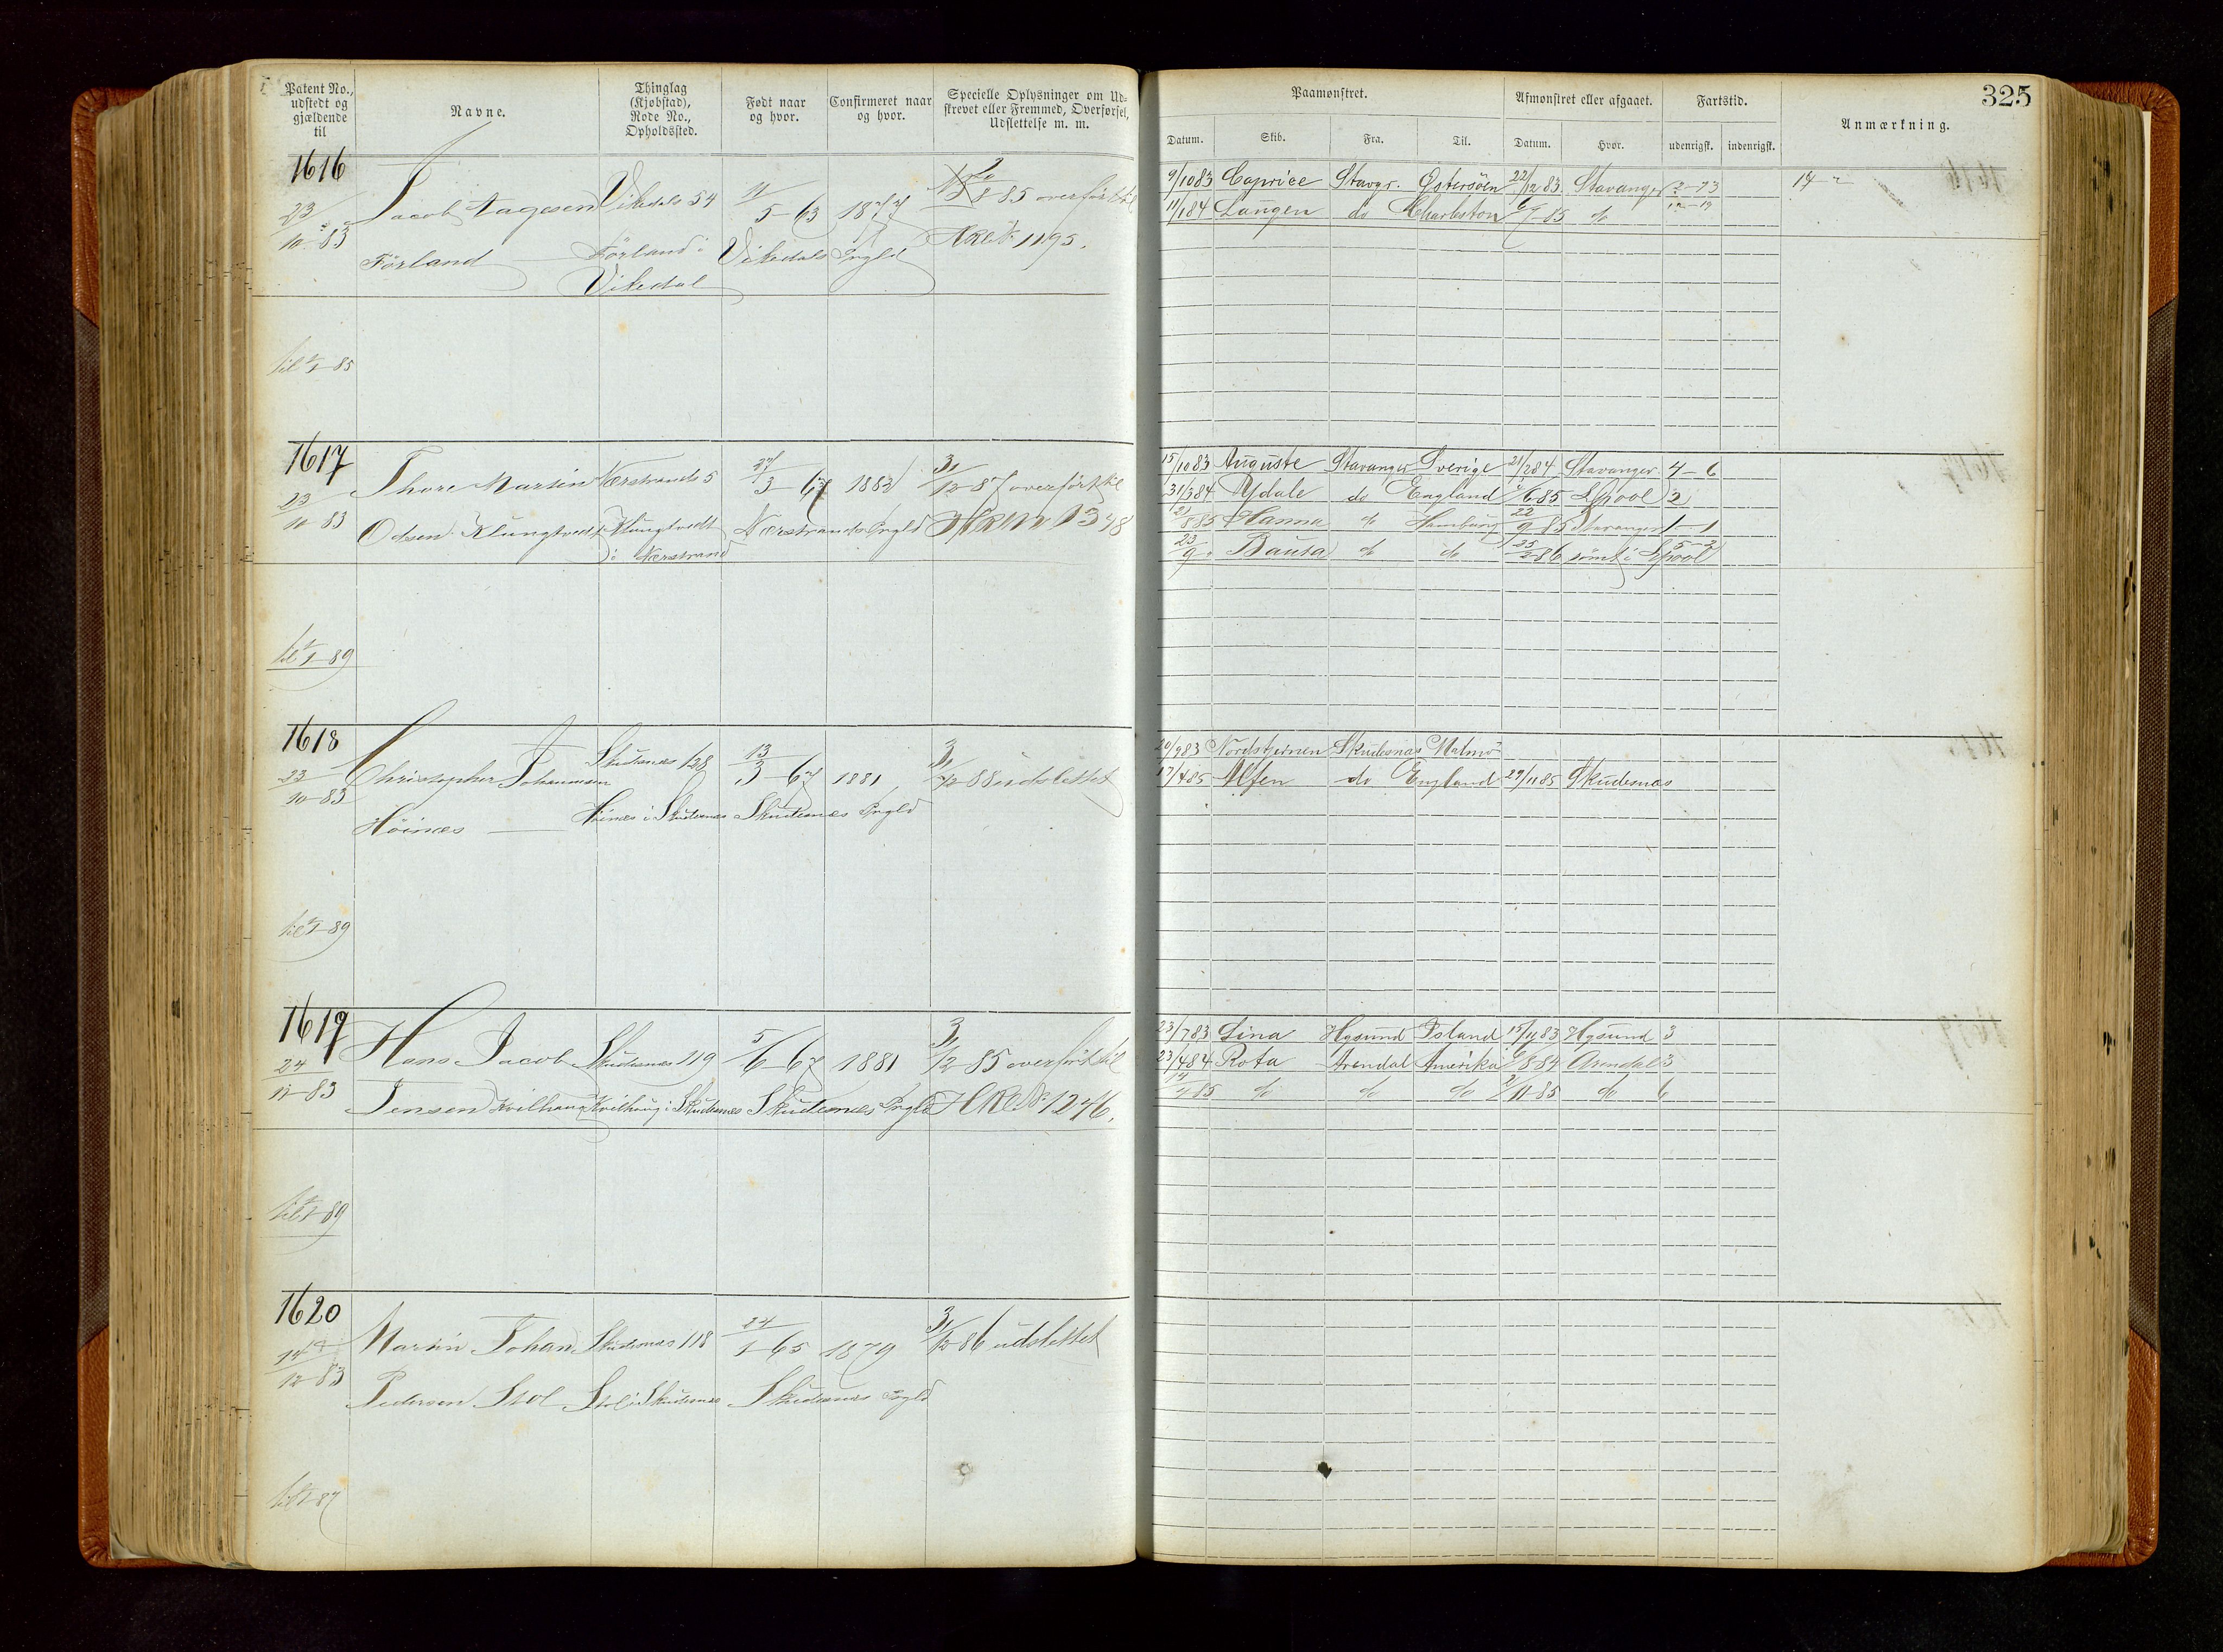 Patent No., udstedt og gjældende til
Navne.
Thinglag (Kjøbstad), Rode No., Opholdssted.
Født naar og hvor.
Confirmeret naar og hvor.
Specielle Oplysninger om Udskrevet eller Fremmed, Overførsel, Udslettelse m. m.
Paamønstret.
Afmønstret eller afgaaet.
Fartstid.
Anmærkning.
325
Datum. Skib. Fra. Til. Datum. Hvor. udenrigsk. indenrigsk.
1616
23/10-83 Jacob Aagesen Vikedals 54 11/5-63 1877 85 overført til
Førland Førland i Vikedals Prgld HRL No 1195.
Vikedal
til 1/1-85
9/10 83 Caprice Stavgr. Østersøen 22/12 83 Stavanger
11/1 84 Langen do Charleston 6/7-85 do
1617
23/10 83 Thore Martin Nærstrands 5 27/3-67 1882 31/12-87 overført til
Odsen Klungtvedt Klungtvedt Nærstrands Prgld HRL No 1348
i Nærstrand
til 1/1-89
15/10 83 Auguste Stavanger Sverige 21/2 84 Stavanger 4-6
31/3 84 Ydale do England /6 85 Lpool 2
21/8 85 Hanna do Hamburg 22/9-85 Stavanger 1-1
23/9 " Bausa do do 25/2 86 rømt i Lpool 5-2
1618
23/10-83 Christopher Johannesen Skudenæs 128 13/3-67 1881 31/12-88 udslettet
Høinæs Høinæs i Skudenæs Skudenæs Prgld
til 1/1-89
20/9 83 Nordstjernen Skudesnæs Malmø
17/4 85 Alfen do England 29/11 85 Skudesnæs
1619
24/11-83 Hans Jacob Skudesnæs 119 5/6-67 1881 31/12-85 overført til
Jensen Kvilhaug Kvilhaug i Skudesnæs Skudesnæs Prgld HRL No 1246.
til 1/1-89
23/7 83 Lina Hgsund Island 15/11 83 Hgsund 3
23/4 84 Rota Arendal Amerika /8 84 Arendal 3
14/4 85 do do do 2/11-85 do 6
1620
14/12-83 Martin Johan Skudesnæs 118 24/1-65 1879 31/12-86 udslettet
Pedersen Stol Stol i Skudesnæs Skudesnæs Prgld
til 1/1-87